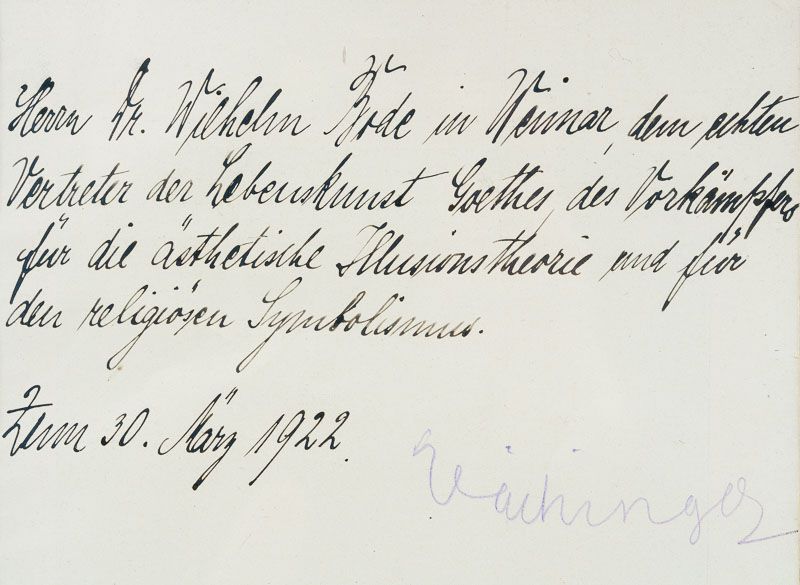 Herrn Dr. Wilhelm Bode in Weimar, dem echten
Vertreter der Lebenskunst Goethes, des Vorkämpfers
für die ästhetische Illusionstheorie und für
den religiösen Symbolismus.
Zum 30. März 1922.
Vaihinger